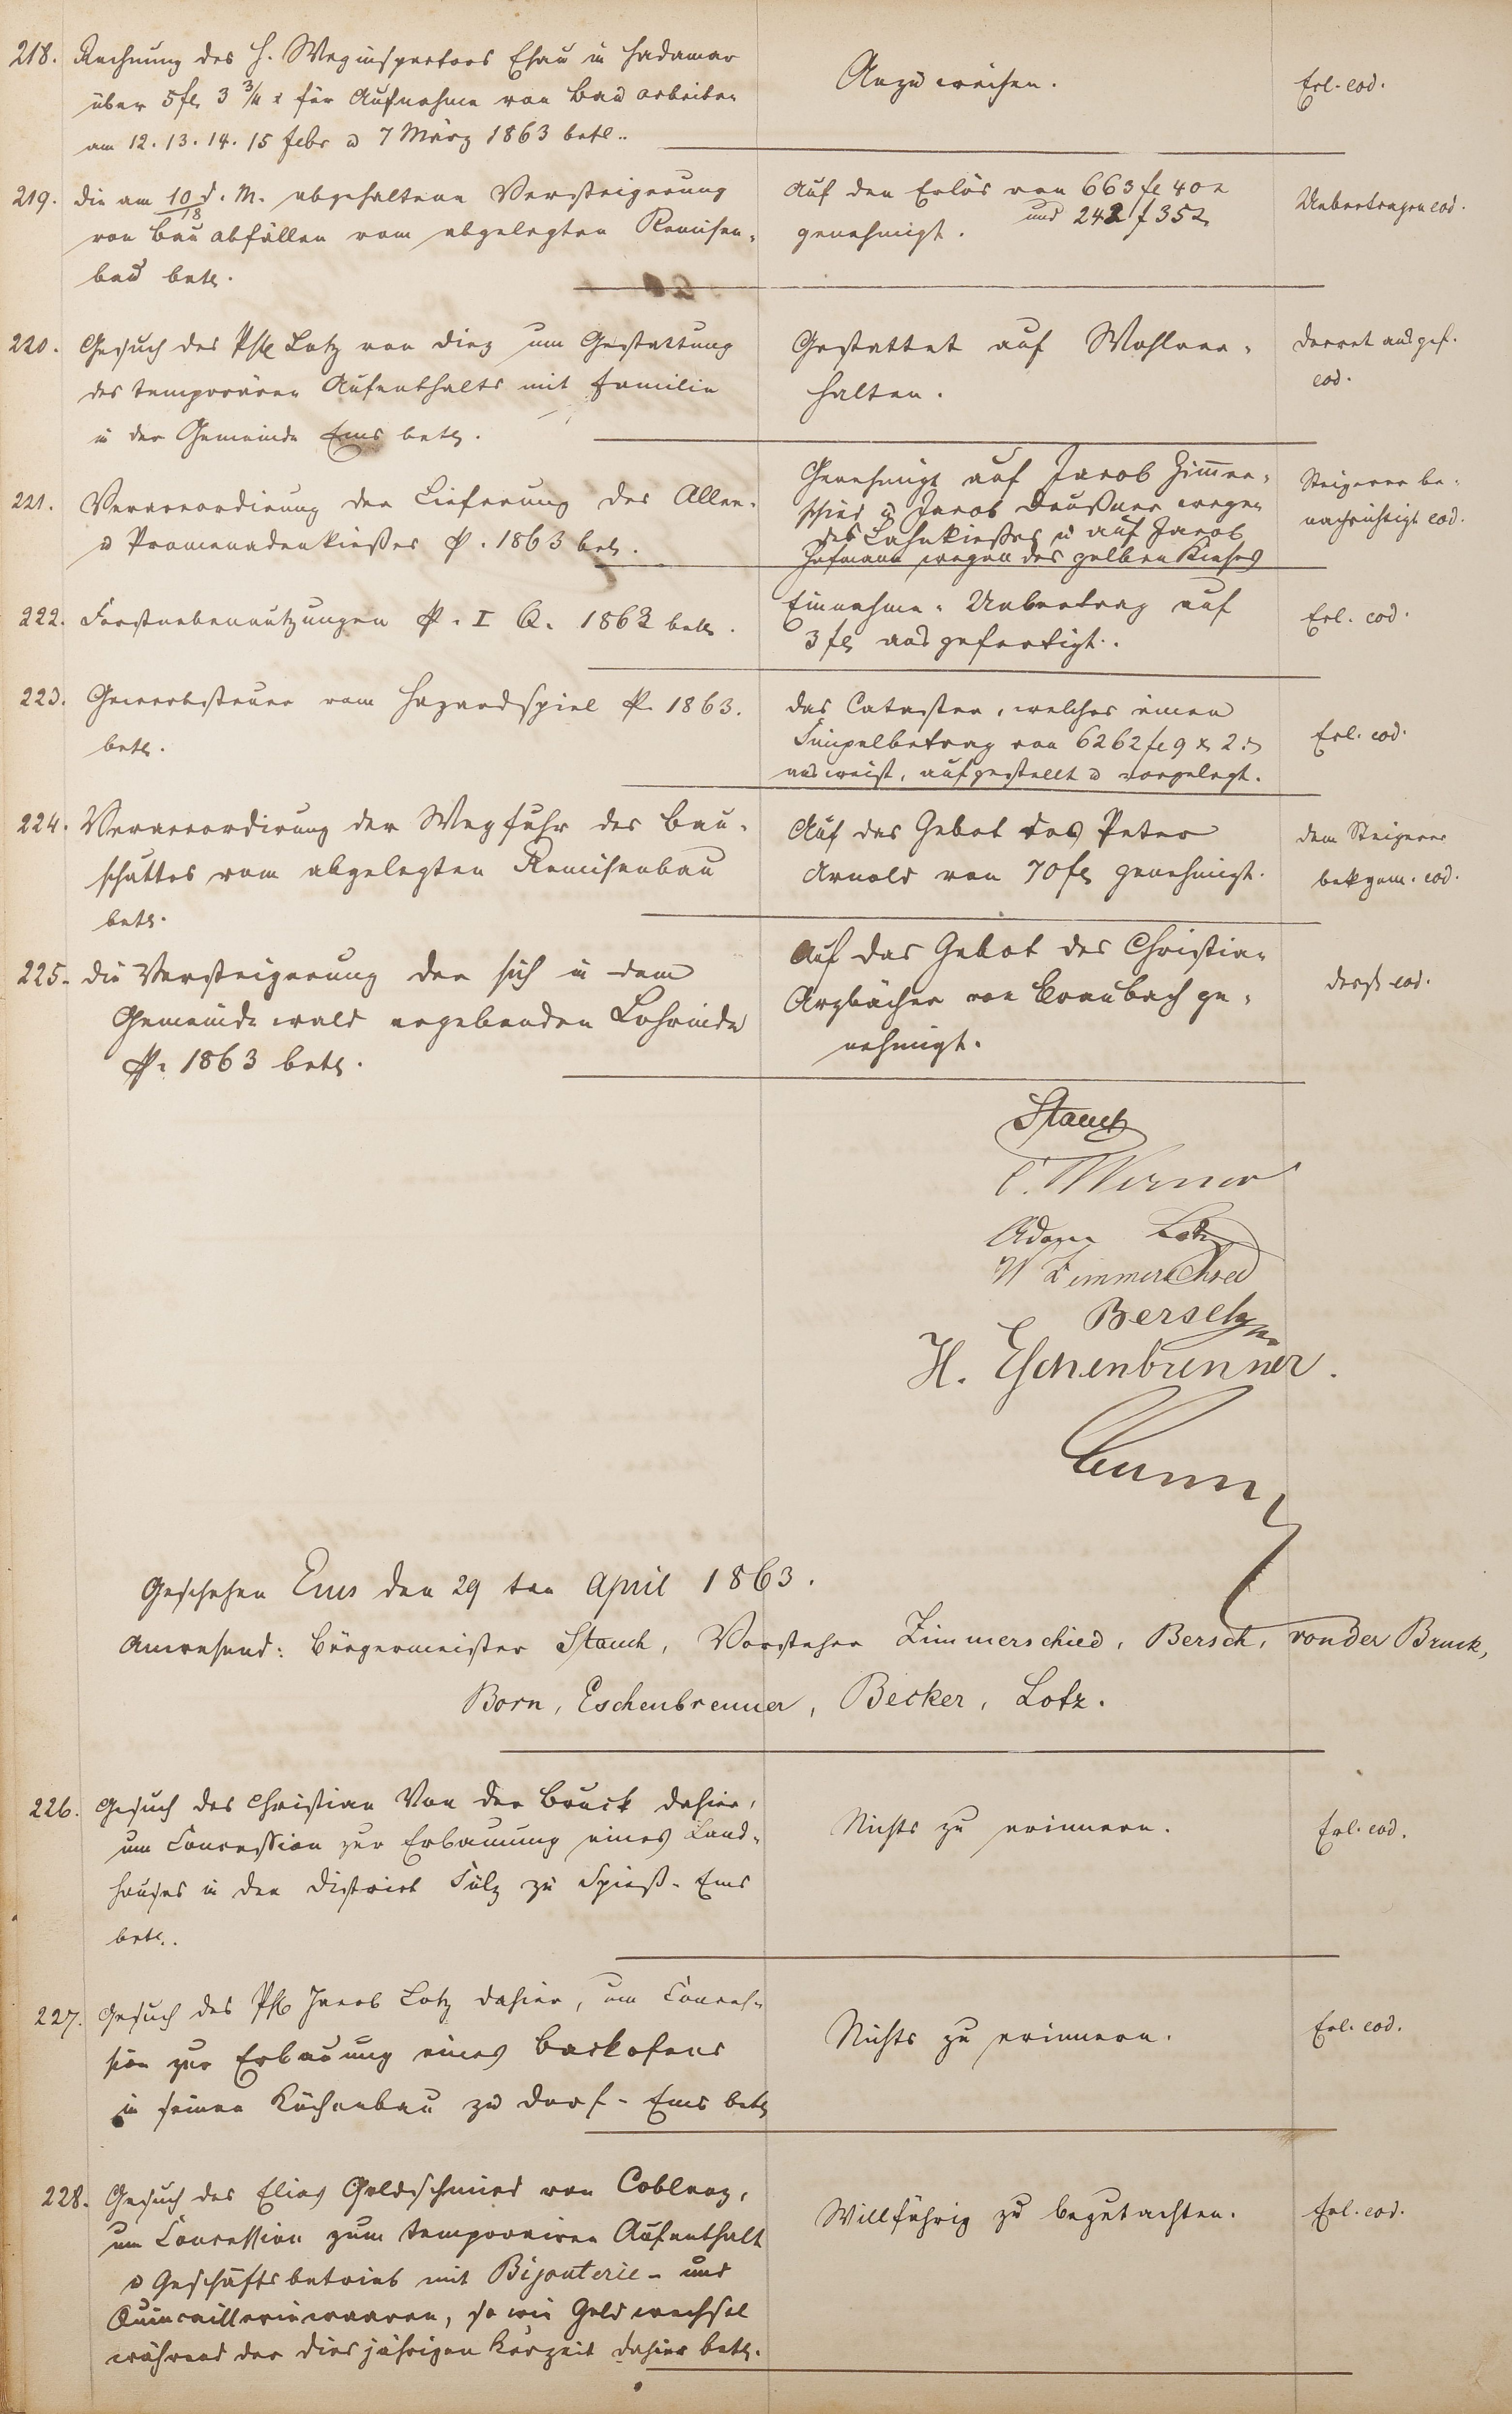 218. Rechnung des H. Weginspectors Esau in Hadamar
über 5 fl 3 3/4 x für Aufnahme von Bau arbeiten
am 12. 13. 14. 15 Febr u 7 März 1863 betr.
Anzuweisen.
Erl. eod.
219. Die am 10/18 d. M. abgehaltene Versteigerung
von Bau abfällen vom abgelegten Remisen-
bau betr.
Auf den Erlös von 663 fl 40 x
und 242 f 35 x
genehmigt.
Uebertragen eod.
220. Gesuch des Phil Lotz von Diez um Gestattung
des temporären Aufenthalts mit Familie
in der Gemeinde Ems betr.
Gestattet auf Wohlver-
halten.
Decret ausgef.
eod.
221. Veraccordirung der Lieferung des Allee-
u Promenadenkieses p. 1863 betr.
Genehmigt auf Jacob Zimmer-
schied u Jacob wegen
des Lahnkieses u auf Jacob
Hofmann wegen des gelben Kieses
Steigerer be-
nachrichtigt eod.
222. Forstnebennutzungen p. I Q. 1863 betr.
Einnahme-Uebertrag auf
3 fl ausgefertigt.
Erl. eod.
223. Gewerbsteuer vom Hazardspiel p. 1863.
betr.
Das Cataster, welches einen
Simpelbetrag von 6262 fl 9 x 2
ausweist, aufgestellt u vorgelegt.
Erl. eod.
224. Veraccordirung der Wegfuhr des Bau-
schuttes vom abgelegten Remisenbau
betr.
Auf das Gebot des Peter
Arnold von 70 fl genehmigt.
Dem Steigerer
bekgem. eod.
225. Die Versteigerung der sich in dem
Gemeindewald ergebenden Lohrinde
p. 1863 betr.
Auf das Gebot des Christian
Arzbächer von Braubach ge-
nehmigt.
Desgl eod.
Stauch
C. Werner
Adam Lotz
W Zimmerschied
Bersch
H. Eschenbrenner.
Geschehen Ems den 29 ten April 1863.
Anwesend: Bürgermeister Stauch, Vorsteher Zimmerschied, Bersch, von der Bruck,
Born, Eschenbrenner, Becker, Lotz.
226. Gesuch des Christian Von der Bruck dahier,
um Concession zur Erbauung eines Land-
hauses in den District Sülz zu Spieß-Ems
betr.
Nichts zu erinnern.
Erl. eod.
227. Gesuch des Ph Jacob Lotz dahier, um Conces-
sion zur Erbauung eines Backofens
in seinen Küchenbau zu Dorf-Ems betr
Nichts zu erinnern.
Erl. eod.
228. Gesuch des Elias Goldschmied von Coblenz,
um Concession zum temporairen Aufenthalt
u Geschäftsbetrieb mit Bijouterie- und
Quincailleriewaaren, so wie Geldwechsel
während der diesjährigen Kurzeit dahier betr.
Willfährig zu begutachten.
Erl. eod.